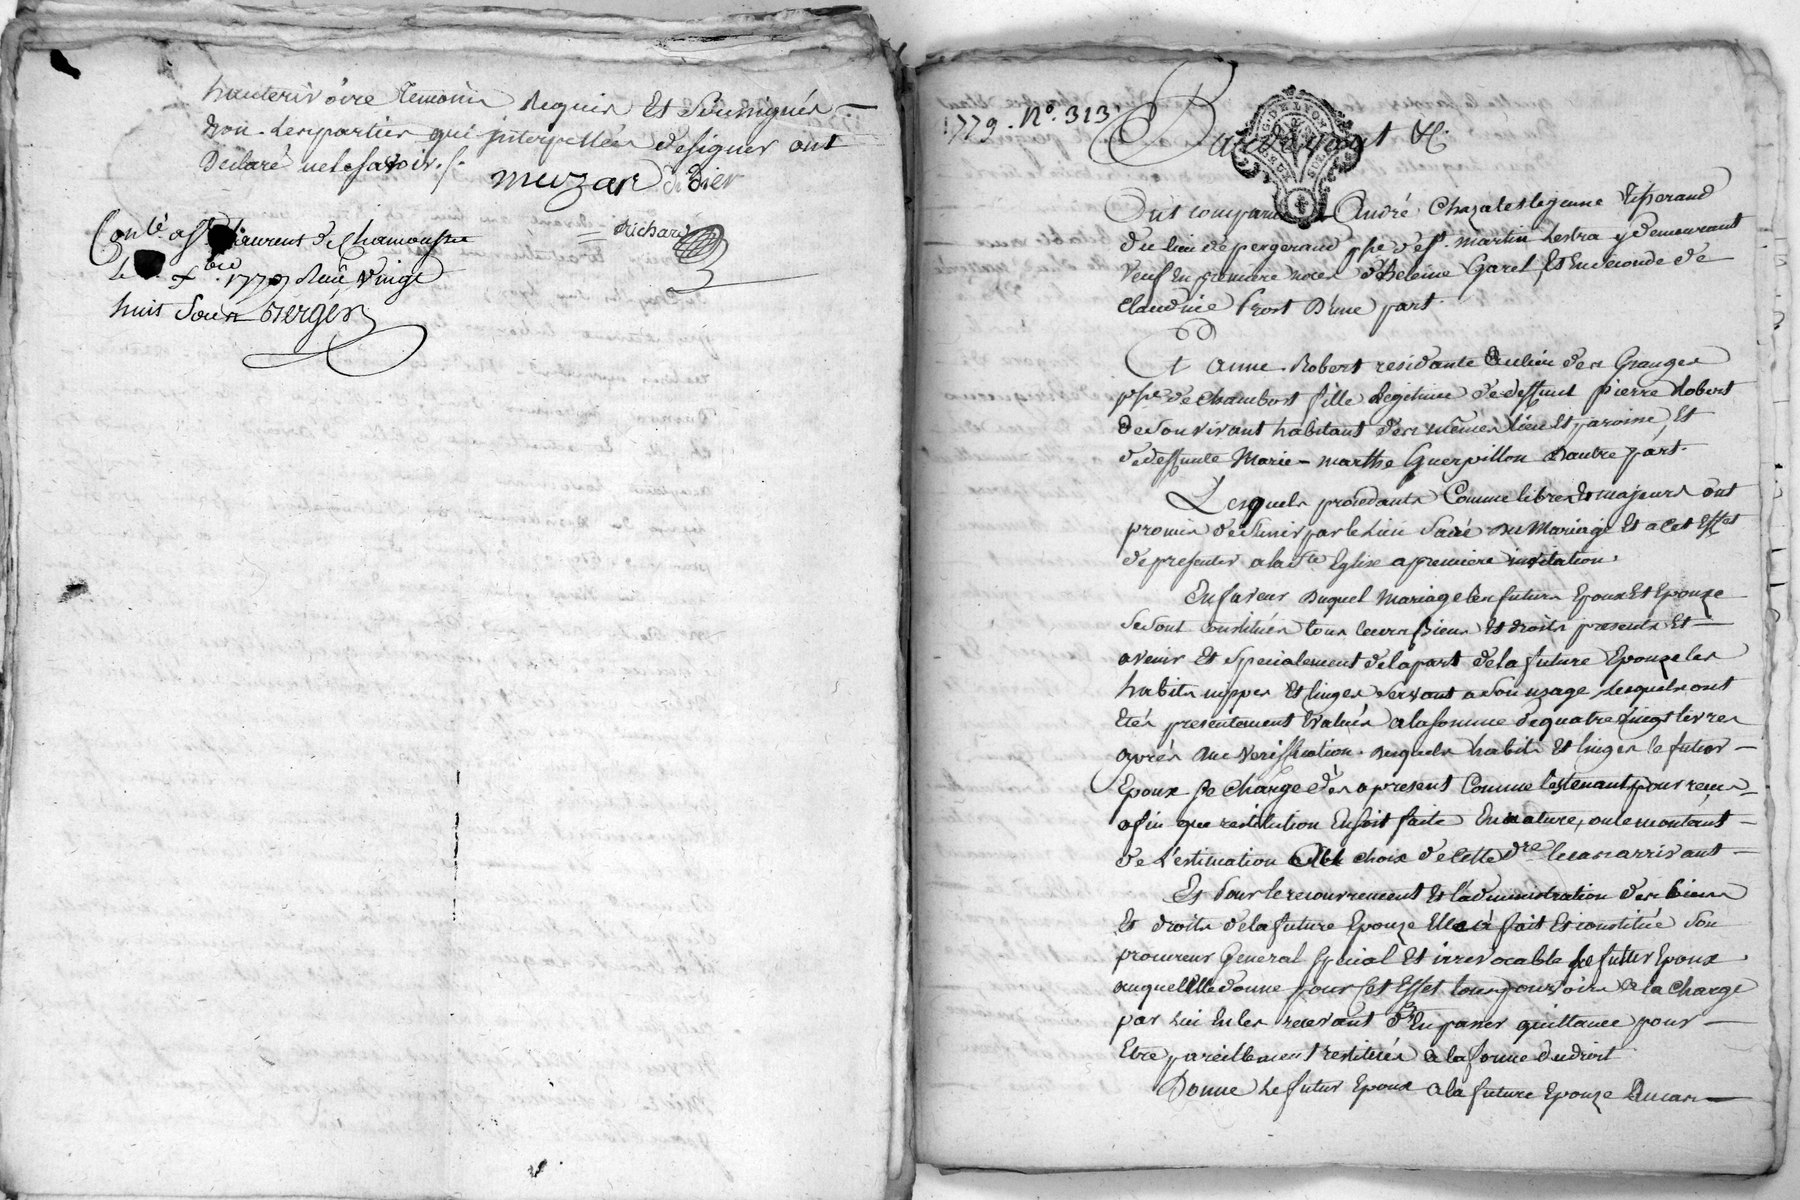 hauterivoire temoins requis et soussignés
non les parties qui interpellées de signer ont
declaré ne le savoir ./.
muzar didier
richard
Conlé a St Laurent de Chamousset
le xbre 1779 Reçu vingt
huit sous Berger
1779. N°. 313
G. DE LYON
Pardevant &c.
Ont comparu André Chazalest lejeune Tisserand
du lieu de pergerand psse de St. martin Lestra y demeurant
veuf en premiere noces d'heleine Garel, Et En seconde de
Claudine Prost D'une part.
Et anne Robert residante au lieu des Granges
psse de Chambost fille Legitime de deffunt pierre Robert
de son vivant habitant des mêmes lieu et paroisse, Et
de deffunte Marie-marthe Guerpillon dautre part.
Lesquels procedants Comme libres et majeurs ont
promis de s'unir par le Lien sacré du Mariage Et a Cet Effet
de presenter a la Ste Eglise a premiere invitation.
En faveur Duquel Mariage les futurs Epoux Et Epouze
Se sont constitués tous leurs Biens Et droits presents Et
avenir Et Specialement de la part de la future Epouze les
habits nippes Et linges servant a son uzage, Lesquels ont
Etés presentement Evalués a la somme de quatre vingt livres
après due verification. desquels habits Et linges le futur
Epoux Se Charge dès a present Comme les tenant pour reçus
afin que restitution En soit faite En nature, ou le montant
de L'estimation au choix de cette dre le cas arrivant
Et Pour le recouvrement Et l'administration des biens
Et droits de la future Epouze Elle a fait Et constitué son
procureur General special Et irrevocable le futur Epoux
auquel Elle donne pour Cet Effet tous pouvoirs a la Charge
par lui En les recevant d'En passer quittance pour
Etre pareillement restitués a la forme du droit
Donne Le futur Epoux a la future Epouze En cas